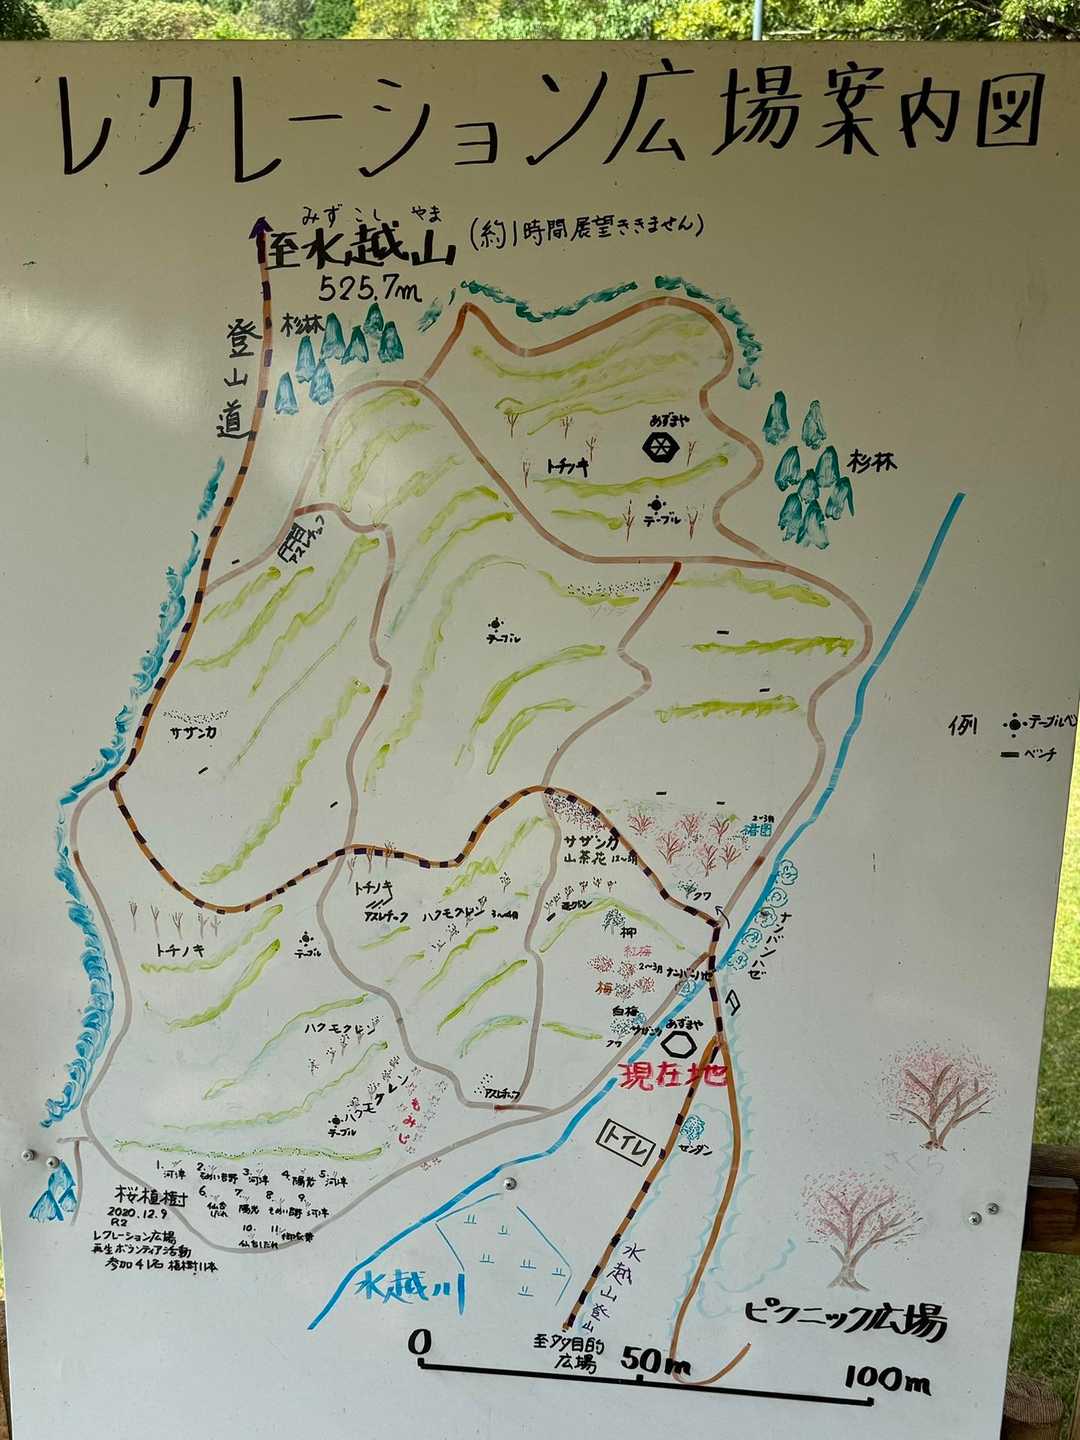 レクレーション広場案内図
みずこしやま
至水越山(約1時間展望ききません)
525.7m
登山道
杉林
あずまや
トチノキ
テーブル
杉林
アスレチック
サザンカ
テーブル
サザンカ
例 テーブルベン
ベンチ
2〜3月
サザンカ
山茶花
クワ
トチノキ
アスレチック
ハクモクレン 3〜4月
柳
ナンバンハゼ
トチノキ
テーブル
紅梅
2〜3月 ナンバンハゼ
梅
白梅
サザンカ
クワ
あずまや
現在地
ハクモクレン
ハクモクレン
もみじ
テーブル
アスレチック
トイレ
センダン
1. 河津 2. そめい吉野 3. 河津 4. 陽光 5. 河津
6. 仙台しだれ 7. 陽光 8. そめい吉野 9. 河津
10. 仙台しだれ 11.
桜植樹
2020.12.9
R2
レクレーション広場
再生ボランティア活動
参加41名 植樹11本
さくら
水越川
水越山登山
ピクニック広場
至多目的
広場
0 50m 100m